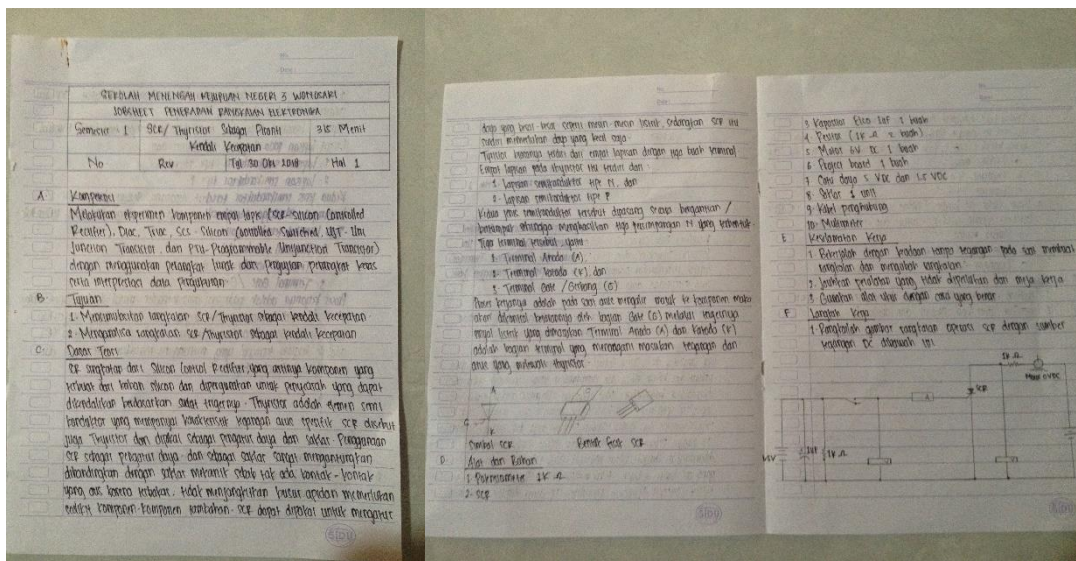 SEKOLAH MENENGAH KEJURUAN NEGERI 3 WONOSARI
JOBSHEET PENERAPAN RANGKAIAN ELEKTRONIKA
Semester 1
SCR/Thyristor Sebagai Piranti
Kendali Kecepatan
315 Menit
No
Rev
Tgl 30 Okt 2018
Hal 1
A. Kompetensi
Melakukan eksperimen komponen empat lapis (SCR-Silicon Controlled
Rectifier), Diac, Triac, SCS-Silicon Controlled Switched, UJT-Uni
Junction Transistor, dan PTU-Programmable Unijunction Transistor)
dengan menggunakan perangkat lunak dan pengujian perangkat keras
serta interpretasi data pengukuran
B. Tujuan
1. Mensimulasikan rangkaian SCR/Thyristor sebagai kendali kecepatan
2. Menganalisa rangkaian SCR/Thyristor sebagai kendali kecepatan
C. Dasar Teori
SCR singkatan dari Silicon Control Rectifier, yang artinya komponen yang
terbuat dari bahan silicon dan dipergunakan untuk penyearah yang dapat
dikendalikan berdasarkan sudut trigernya. Thyristor adalah elemen semi
konduktor yang mempunyai karakteristik tegangan arus spesifik SCR disebut
juga Thyristor dan dipakai sebagai pengatur daya dan saklar. Penggunaan
SCR sebagai pengatur daya dan sebagai saklar sangat menguntungkan
dibandingkan dengan saklar mekanik sebab tak ada kontak-kontak
yang aus karena terbakar, tidak menjangkitkan busur api dan memerlukan
sedikit komponen-komponen tambahan. SCR dapat dipakai untuk mengatur
SIDU
daya yang besar-besar seperti mesin-mesin listrik, sedangkan SCR itu
sendiri memerlukan daya yang kecil saja.
Thyristor biasanya terdiri dari empat lapisan dengan tiga buah terminal
Empat lapisan pada thyristor itu terdiri dari
1. Lapisan semikonduktor tipe N, dan
2. Lapisan semikonduktor tipe P
Kedua jenis semikonduktor tersebut dipasang secara bergantian /
bertumpuk sehingga menghasilkan tiga persimpangan PN yang terbentuk.
Tiga terminal tersebut, yaitu
1. Terminal Anoda (A),
2. Terminal Katoda (K), dan
3. Terminal Gate / Gerbang (G)
kerjanya adalah pada saat arus mengalir masuk ke komponen maka
akan dikontrol besarannya oleh bagian Gate (G) melalui trigernya
sinyal listrik yang dimasukan. Terminal Anoda (A) dan Katoda (K)
adalah bagian terminal yang menangani masukan tegangan dan
arus yang melewati thyristor
A
G
K
Simbol SCR
Bentuk fisik SCR
D. Alat dan Bahan
1. Potensiometer 1K Ω
2. SCR
SIDU
3. Kapasitor Elco 1uF 1 buah
4. Resistor (1K Ω 2 buah)
5. Motor 6V DC 1 buah
6. Project board 1 buah
7. Catu daya 5 VDC dan 15 VDC
8. Saklar 1 unit
9. Kabel penghubung
10. Multimeter
E. Keselamatan Kerja
1. Bekerjalah dengan keadaan tanpa tegangan pada saat membuat
rangkaian dan mengubah rangkaian
2. Jauhkan peralatan yang tidak diperlukan dari meja kerja
3. Gunakan alat ukur dengan cara yang benar
F. Langkah Kerja
1. Rangkailah gambar rangkaian operasi SCR dengan sumber
tegangan DC dibawah ini
1K Ω
Motor 6VDC
SCR
A
1K Ω
SIDU